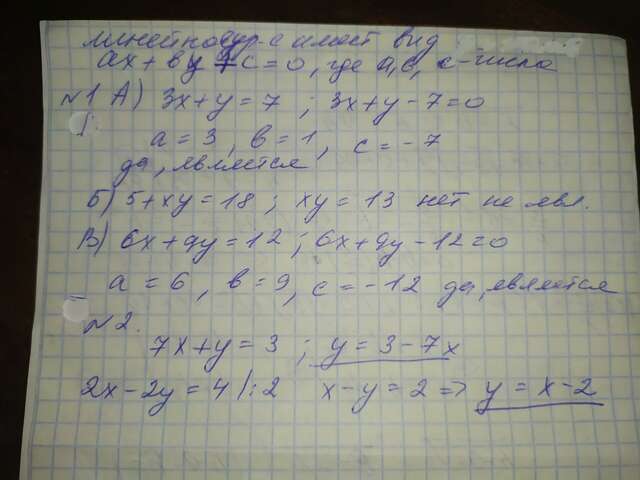 линейное ур-е имеет вид
ax + by + c = 0, где a, b, c - числа
№1 А) 3x + y = 7 ; 3x + y - 7 = 0
a = 3, b = 1, c = -7
да, является
Б) 5 + xy = 18 ; xy = 13 нет не явл.
В) 6x + 9y = 12 ; 6x + 9y - 12 = 0
a = 6, b = 9, c = -12 да, является
№2.
7x + y = 3 ; y = 3 - 7x
2x - 2y = 4 |:2 x - y = 2 => y = x - 2